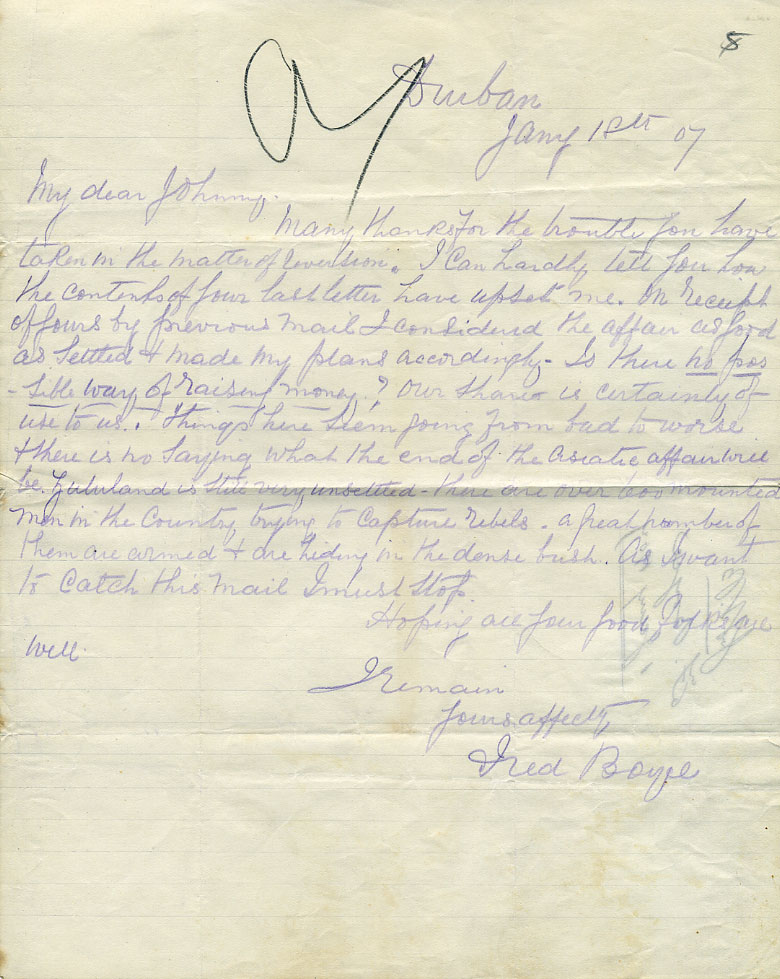 8
Durban
Jany 18th 07
My dear Johnny.
Many thanks for the trouble you have
taken in the matter of reversion. I can hardly tell you how
the contents of your last letter have upset me. On receipt
of yours by previous mail I considered the affair as good
as settled & made my plans accordingly - Is there no pos
- sible way of raising money? Our share is certainly of
use to us. Things here seem going from bad to worse
& there is no saying what the end of the asiatic affair will
be. Zululand is still very unsettled - there are over 600 mounted
men in the Country trying to capture rebels. a great number of
them are armed & are hiding in the dense bush. As I want
to catch this mail I must stop
Hoping all your good folks are
well.
I remain
Yours affectly
Fred Boyce